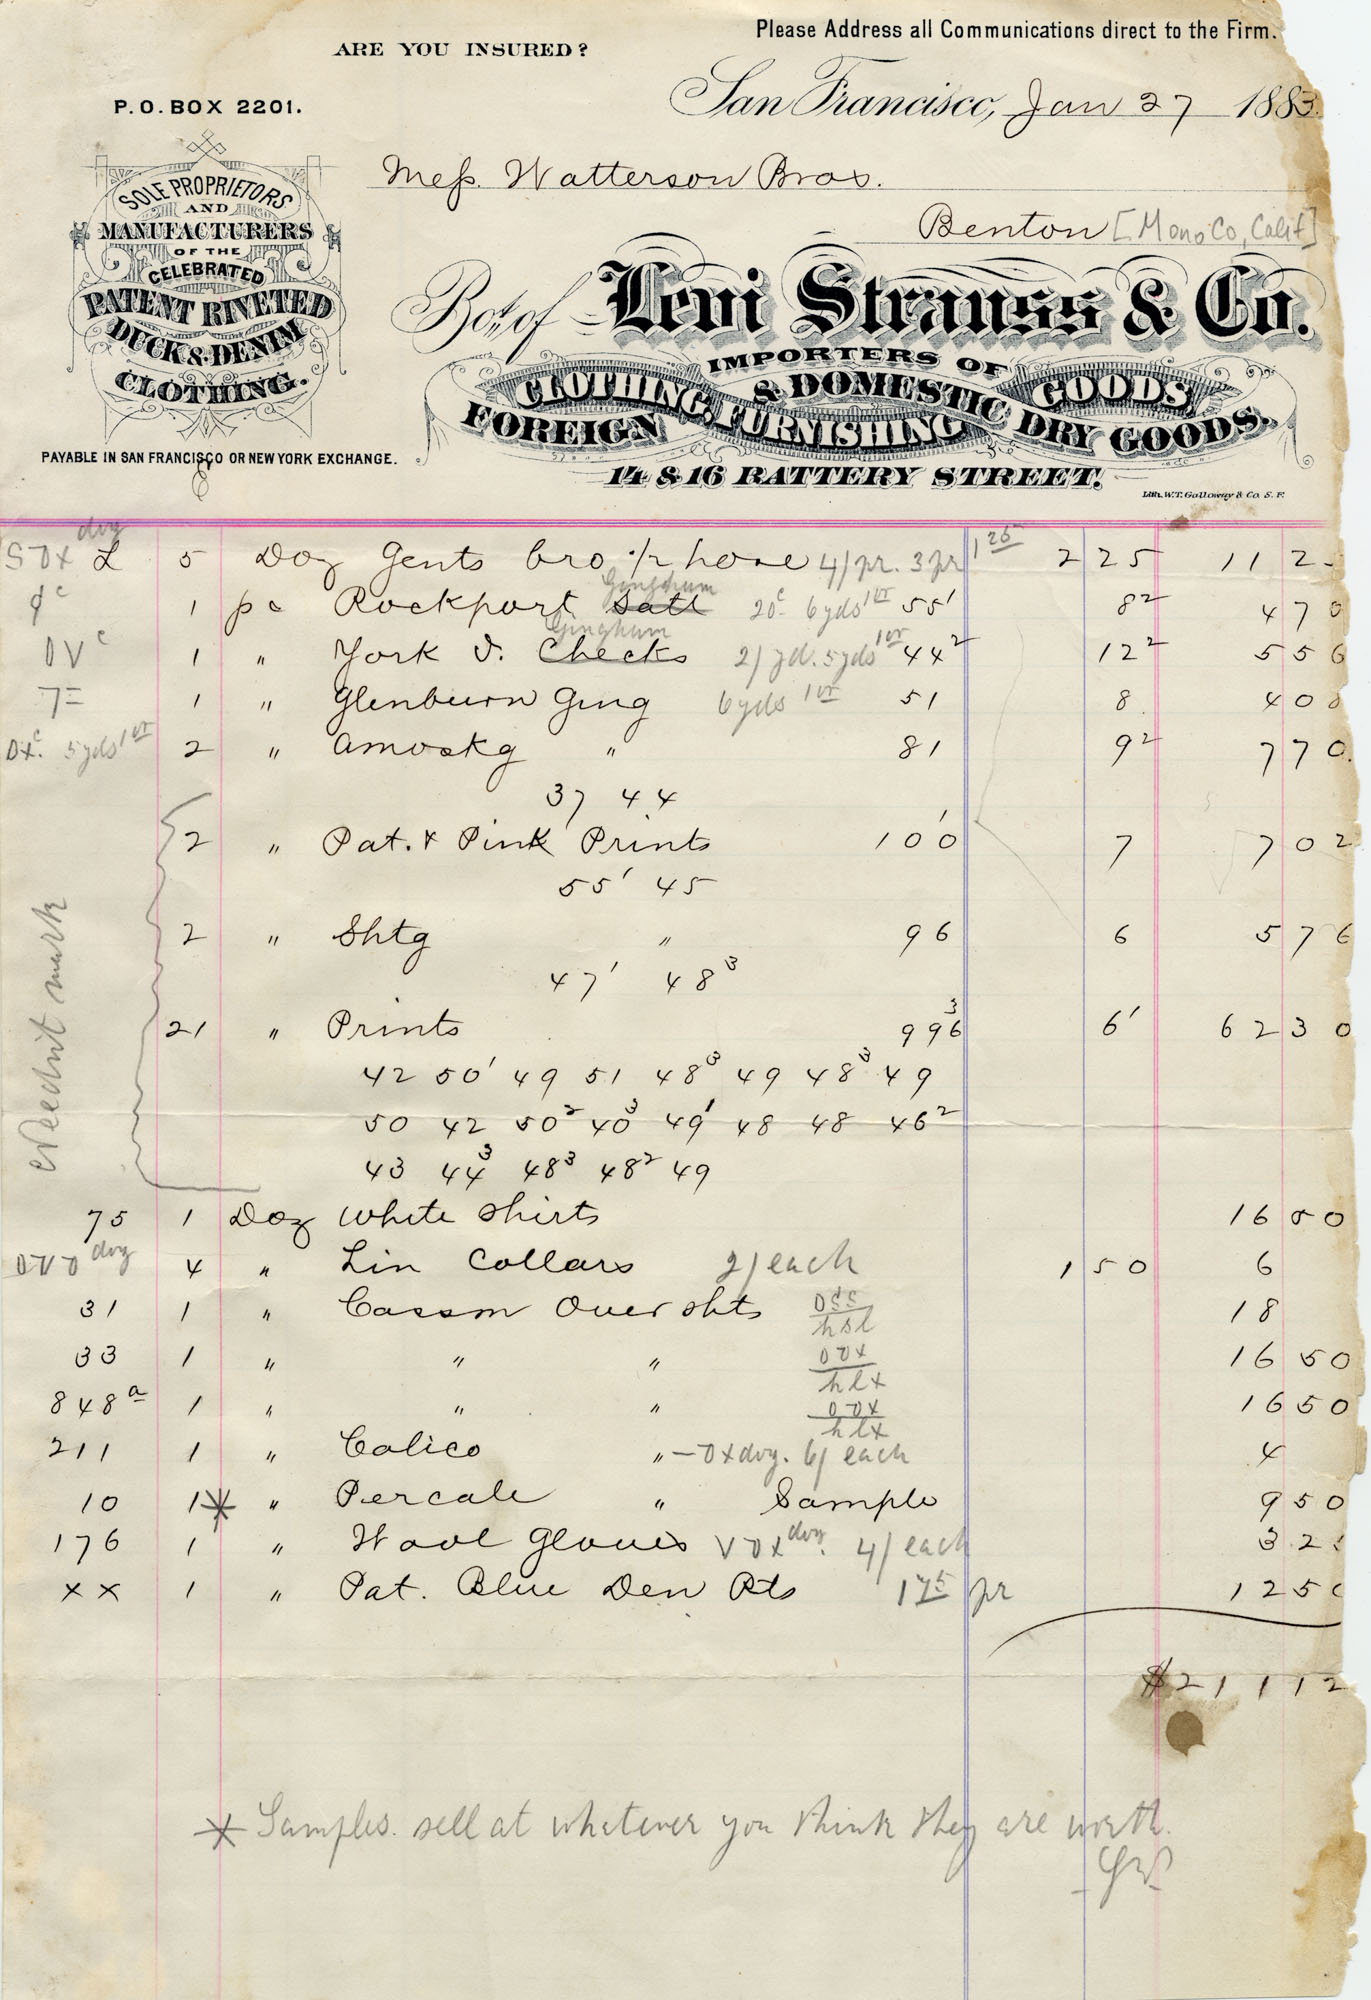 Please Address all Communications direct to the Firm.
ARE YOU INSURED?
P.O. BOX 2201.
San Francisco, Jan 27 1883.
Mess. Watterson Bros.
Benton [Mono Co, Calif]
SOLE PROPRIETORS
AND
MANUFACTURERS
OF THE
CELEBRATED
PATENT RIVETED
DUCK & DENIM
CLOTHING.
PAYABLE IN SAN FRANCISCO OR NEW YORK EXCHANGE.
Bot. of Levi Strauss & Co.
IMPORTERS OF
CLOTHING, FURNISHING GOODS
FOREIGN & DOMESTIC DRY GOODS.
14 & 16 BATTERY STREET.
Lith. W.T. Galloway & Co. S.F.
5 Doz Gents bro 1/2 hose 4/pr. 3 pr 1 25 2 25 11 2
Gingham
1 pc Rockport Satt 20c 6yds 55' 8 2 4 70
Gingham
1 " York D. Checks 2/yd. 5yds 44 2 12 2 5 56
1 " Glenburn Ging 6yds 51 8 4 08
5yds 2 " Amoskg " 81 9 2 7 70.
37 44
2 " Pat. & Pink Prints 100' 7 7 02
55' 45
2 " Shtg " 96 6 5 76
47' 48 3
21 " Prints 996 3 6' 62 30
42 50' 49 51 48 3 49 48 3 49
50 42 50 2 40 3 49' 48 48 46 2
43 44 3 48 3 48 2 49
Needn't mark
75 1 Doz White Shirts 16 50
4 " Lin Collars 2/each 1 50 6
31 1 " Cassm Over shts 18
33 1 " " " 16 50
848a 1 " " " 16 50
211 1 " Calico " 6/ each 4
10 1* " Percale " Sample 9 50
176 1 " Wool Gloves 4/ each 3 2
xx 1 " Pat. Blue Den Pts 1 75 pr 12 50
$211 12
* Samples. sell at whatever you think they are worth.